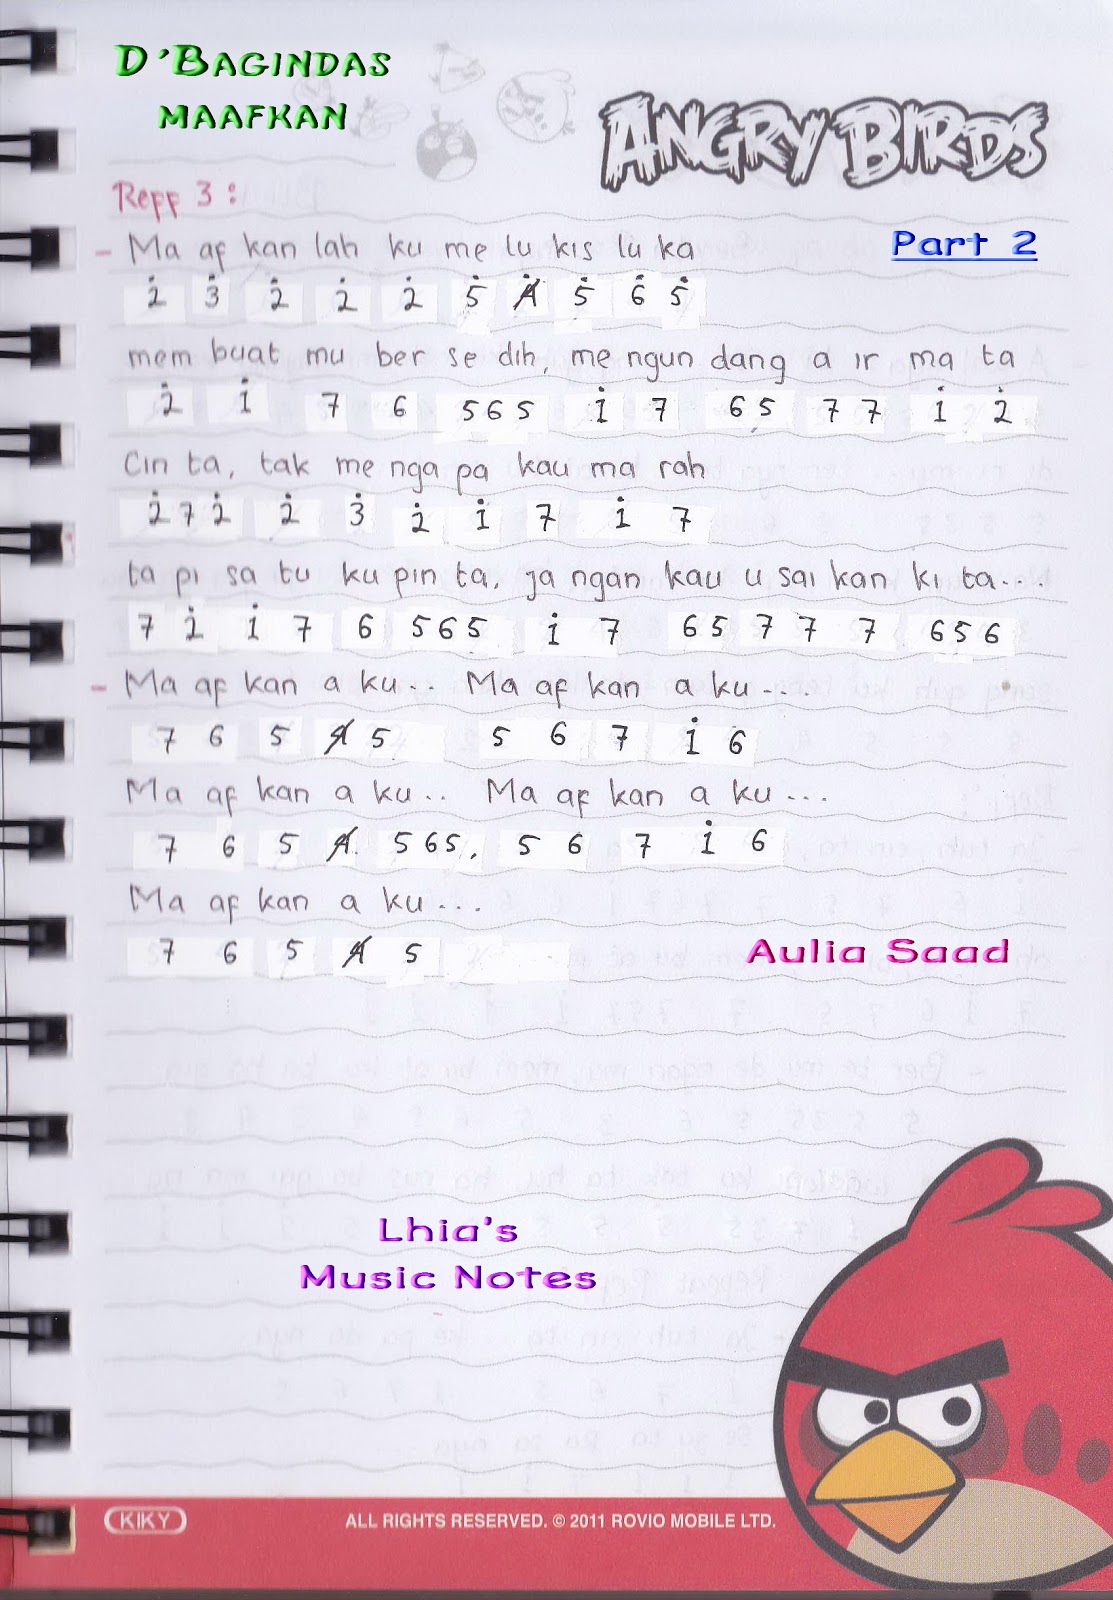 D'BAGINDAS
MAAFKAN
ANGRY BIRDS
Reff 3 :
Part 2
- Ma af kan lah ku me lu kis lu ka
2̇ 3̇ 2̇ 2̇ 2̇ 5̇ 4̸̇ 5̇ 6̇ 5̇
mem buat mu ber se dih, me ngun dang a ir ma ta
2̇ 1̇ 7 6 565 1̇ 7 65̇ 77 1̇ 2̇
Cin ta, tak me nga pa kau ma rah
2̇72̇ 2̇ 3̇ 2̇ 1̇ 7 1̇ 7
ta pi sa tu ku pin ta, ja ngan kau u sai kan ki ta...
7 2̇ 1̇ 7 6 565 1̇ 7 65 7 7 7 656
- Ma af kan a ku.. Ma af kan a ku....
7 6 5 4̸ 5 5 6 7 1̇ 6
Ma af kan a ku.. Ma af kan a ku...
7 6 5 4̸. 565, 5 6 7 1̇ 6
Ma af kan a ku...
7 6 5 4̸ 5
Aulia Saad
Lhia's
Music Notes
KIKY
ALL RIGHTS RESERVED. © 2011 ROVIO MOBILE LTD.